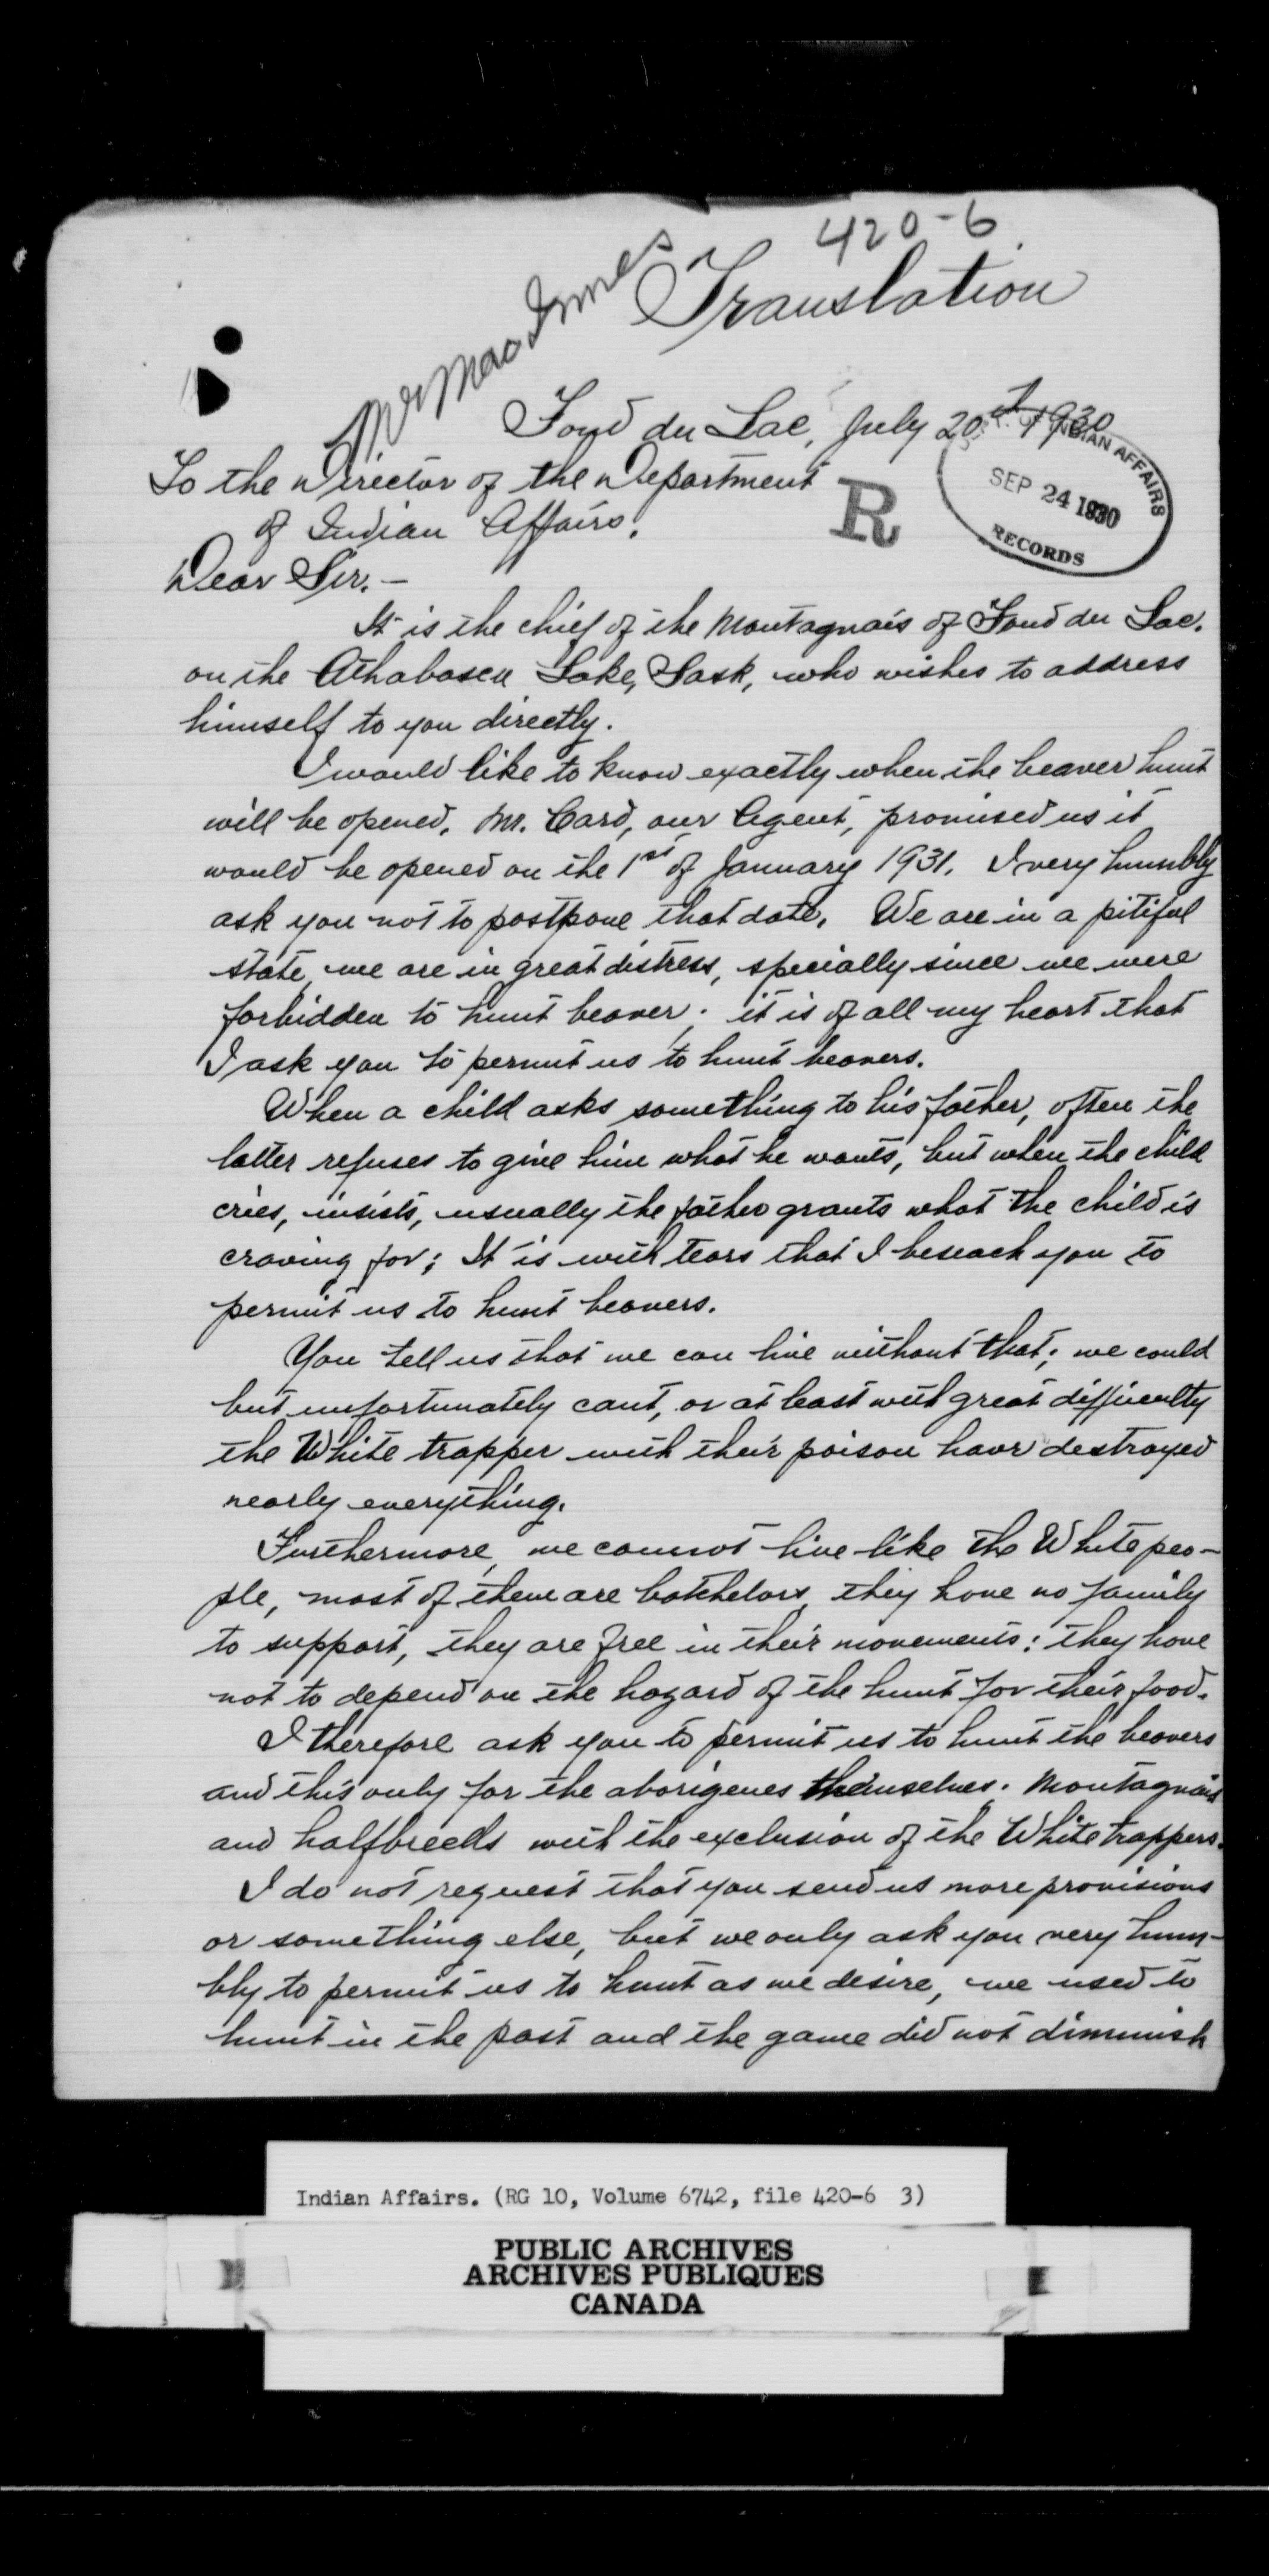 420-6
Mr MacInnes
Translation
Fond du Lac, July 20th 1930
DEPT. OF INDIAN AFFAIRS
SEP 24 1930
RECORDS
R
To the Director of the Department
of Indian Affairs.
Dear Sir. —
It is the chief of the Montagnais of Fond du Lac.
on the Athabasca Lake, Sask, who wishes to address
himself to you directly.
I would like to know exactly when the beaver hunt
will be opened. Mr. Card, our Agent, promised us it
would be opened on the 1st of January 1931. I very humbly
ask you not to postpone that date. We are in a pitiful
state, we are in great distress, specially since we were
forbidden to hunt beaver; it is of all my heart that
I ask you to permit us to hunt beavers.
When a child asks something to his father, often the
latter refuses to give him what he wants, but when the child
cries, insists, usually the father grants what the child is
craving for; It is with tears that I beseach you to
permit us to hunt beavers.
You tell us that we can live without that; we could
but unfortunately cant, or at least with great difficulty
the White trapper with their poison have destroyed
nearly everything.
Furthermore, we cannot live like the White peo-
ple, most of them are batchelors, they have no family
to support, they are free in their movements; they have
not to depend on the hazard of the hunt for their food.
I therefore ask you to permit us to hunt the beavers
and this only for the aborigenes themselves. Montagnais
and halfbreeds with the exclusion of the White trappers.
I do not request that you send us more provisions
or something else, but we only ask you very hum-
bly to permit us to hunt as we desire, we used to
hunt in the past and the game did not diminish
Indian Affairs. (RG 10, Volume 6742, file 420-6 3)
PUBLIC ARCHIVES
ARCHIVES PUBLIQUES
CANADA